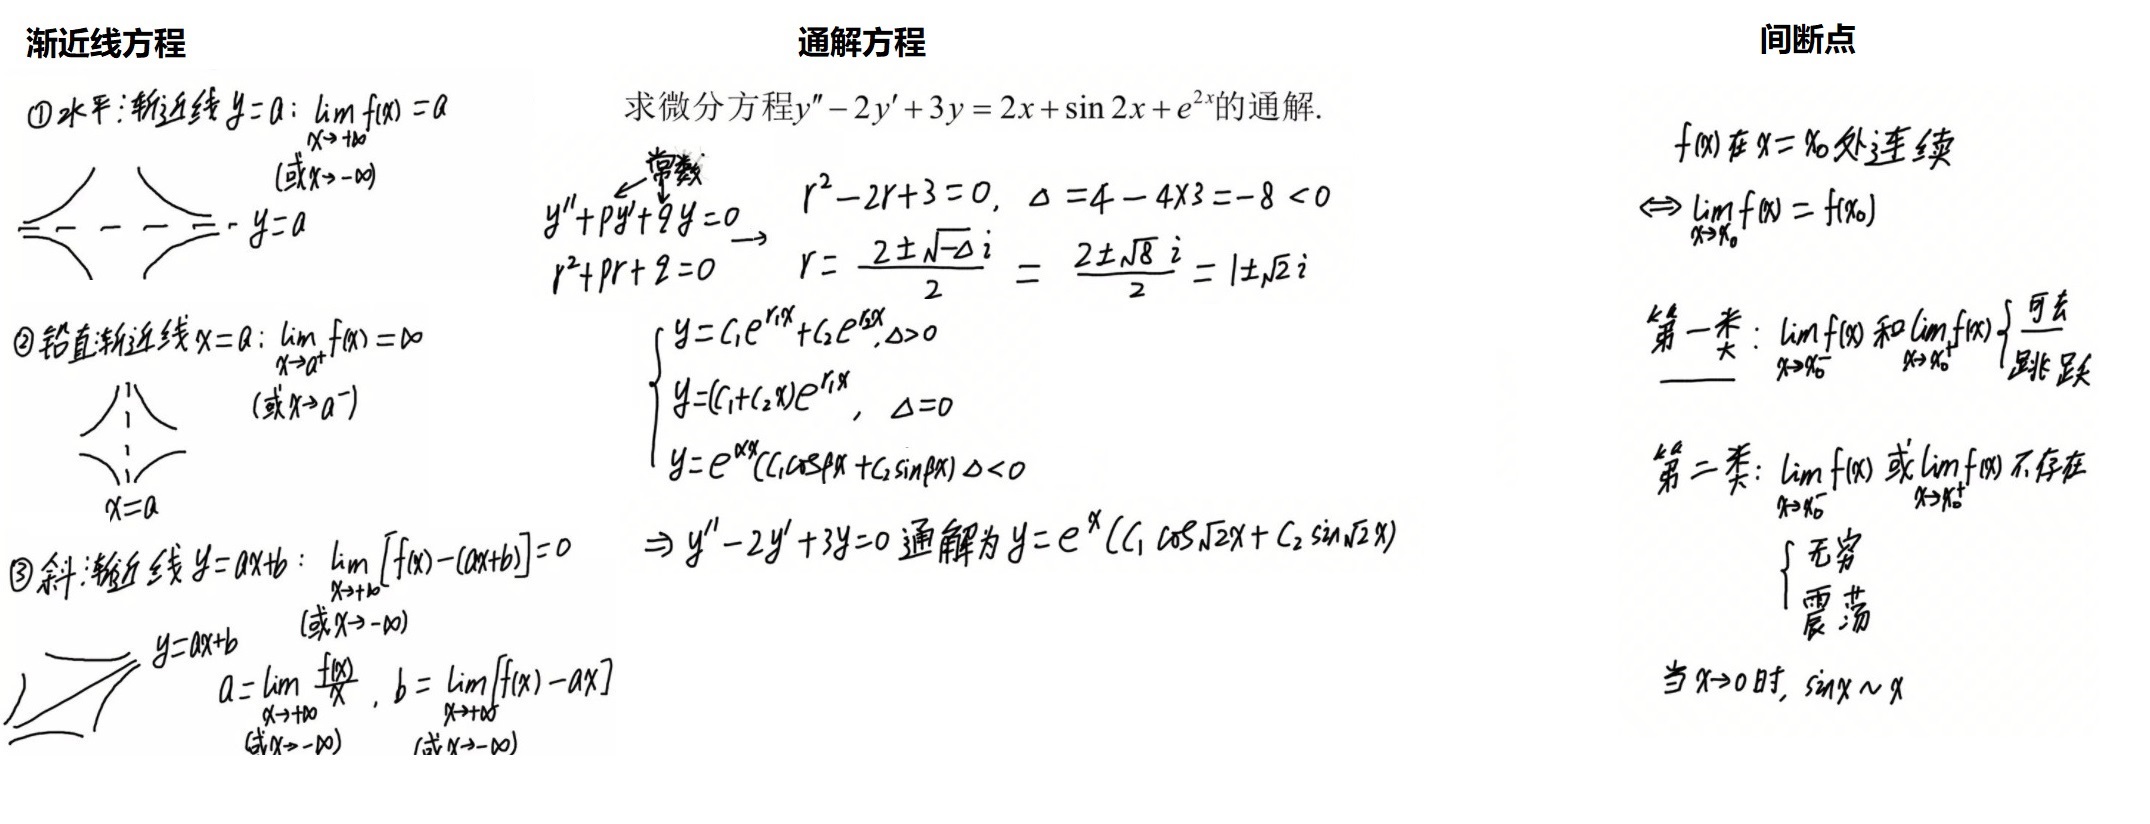 渐近线方程
①水平渐近线 y=a: lim f(x) = a
x→+∞
(或x→-∞)
y=a
②铅直渐近线 x=a: lim f(x) = ∞
x→a⁺
(或x→a⁻)
x=a
③斜渐近线 y=ax+b: lim [f(x)-(ax+b)]=0
x→+∞
(或x→-∞)
y=ax+b
a=lim f(x)/x , b= lim[f(x)-ax]
x→+∞ x→+∞
(或x→-∞) (或x→-∞)
通解方程
求微分方程y″-2y′+3y=2x+sin2x+e^{2x}的通解.
常数
y″+py′+qy=0 →
r²+pr+q=0
r²-2r+3=0, Δ=4-4×3=-8<0
r= (2±√-Δ i)/2 = (2±√8 i)/2 = 1±√2 i
y=C₁e^{r₁x}+C₂e^{r₂x}, Δ>0
y=(C₁+C₂x)e^{r₁x}, Δ=0
y=e^{αx}(C₁cosβx+C₂sinβx) Δ<0
⇒ y″-2y′+3y=0 通解为 y=e^x(C₁ cos√2x+C₂ sin√2x)
间断点
f(x)在x=x₀处连续
⇔ lim f(x) = f(x₀)
x→x₀
第一类: lim f(x) 和 lim f(x) { 可去
x→x₀⁻ x→x₀⁺ 跳跃
第二类: lim f(x) 或 lim f(x) 不存在
x→x₀⁻ x→x₀⁺
{ 无穷
震荡
当x→0时, sinx~x